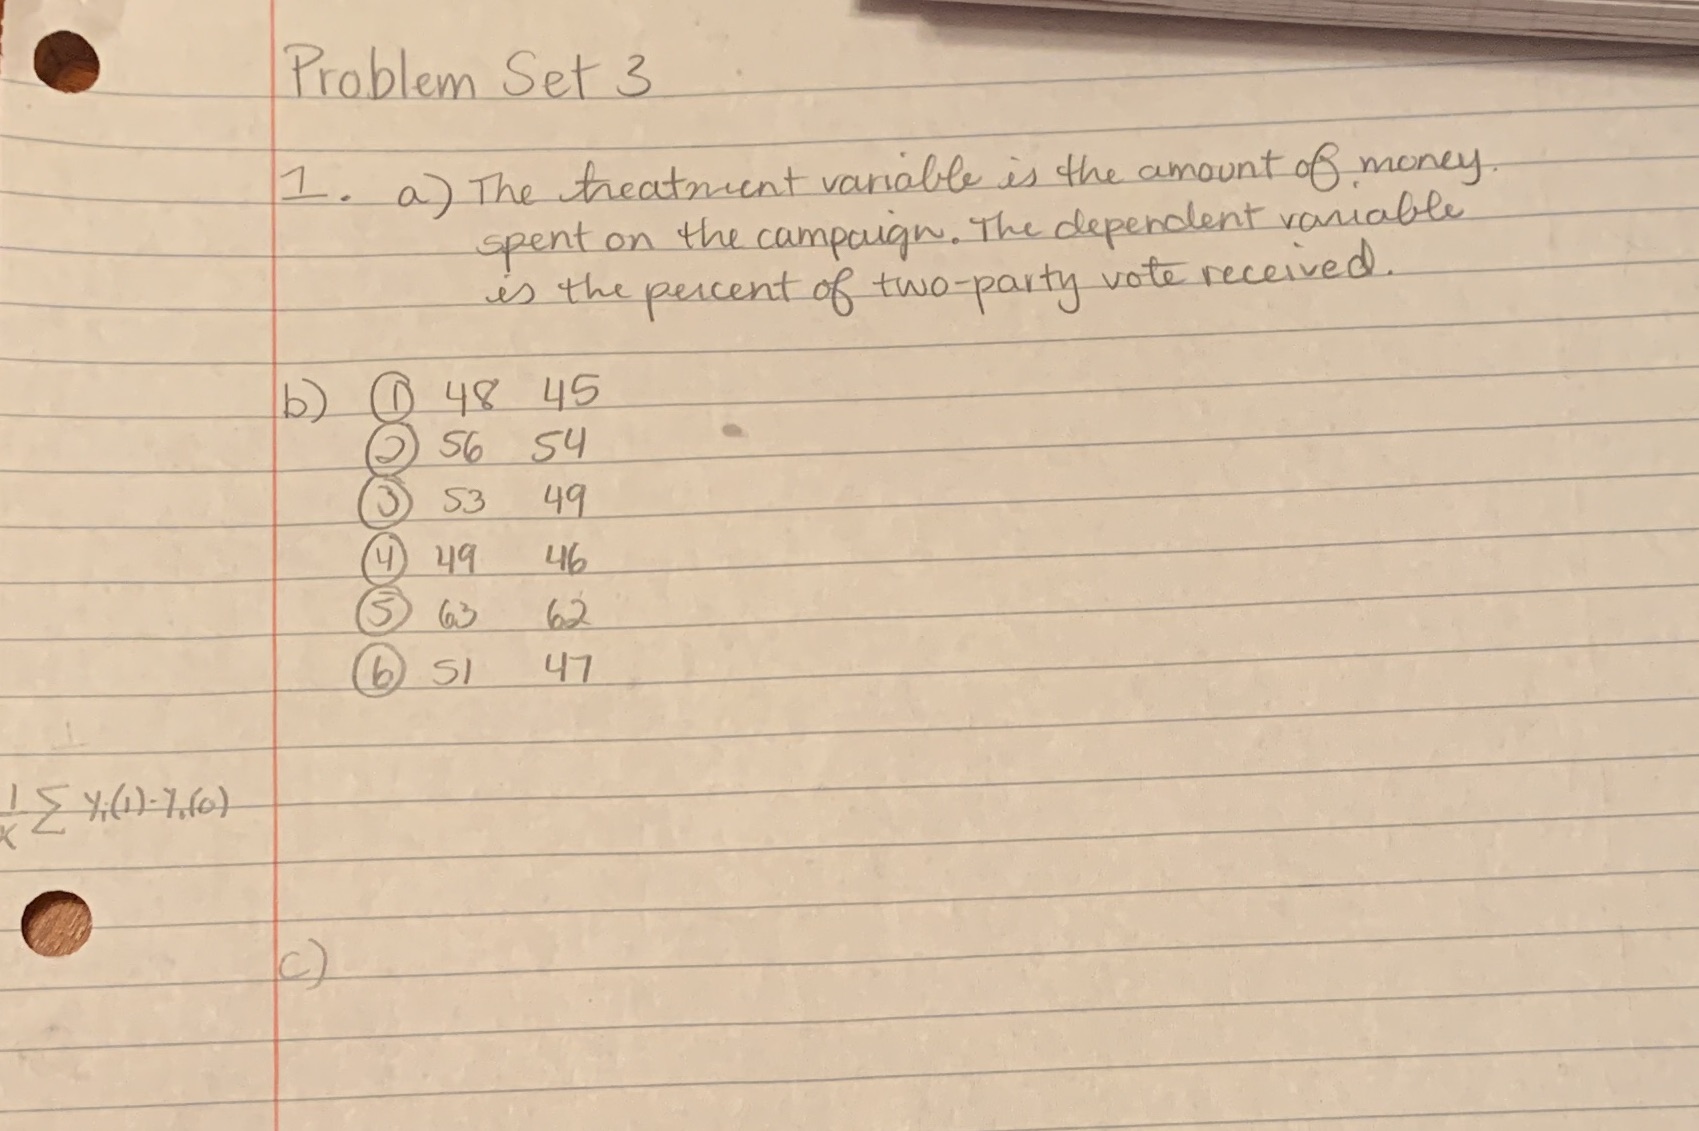 Problem Set 3
1. a) The treatment variable is the amount of money
spent on the campaign. The dependent variable
is the percent of two-party vote received.
b) ① 48 45
② 56 54
③ 53 49
④ 49 46
⑤ 63 62
⑥ 51 47
1/K ∑ Yi(1)-Yi(0)
c)